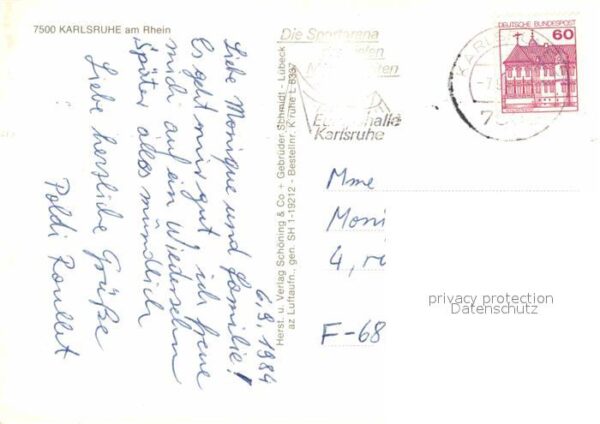 7500 KARLSRUHE am Rhein
6.9.1984
Liebe Monique und Familie!
Es geht mir gut, ich freue
mich auf ein Wiedersehn
Später alles mündlich
Liebe herzliche Grüße
Poldi Roullet
Herst. u. Verlag Schöning & Co + Gebrüder Schmidt - Lübeck
az Luftaufn., gen. SH 1-19212 - Bestellnr. K'ruhe L 8337
Die Sportarena
Karlsruhe
DEUTSCHE BUNDESPOST
60
Mme
Moni
4, r
F-68
privacy protection
Datenschutz